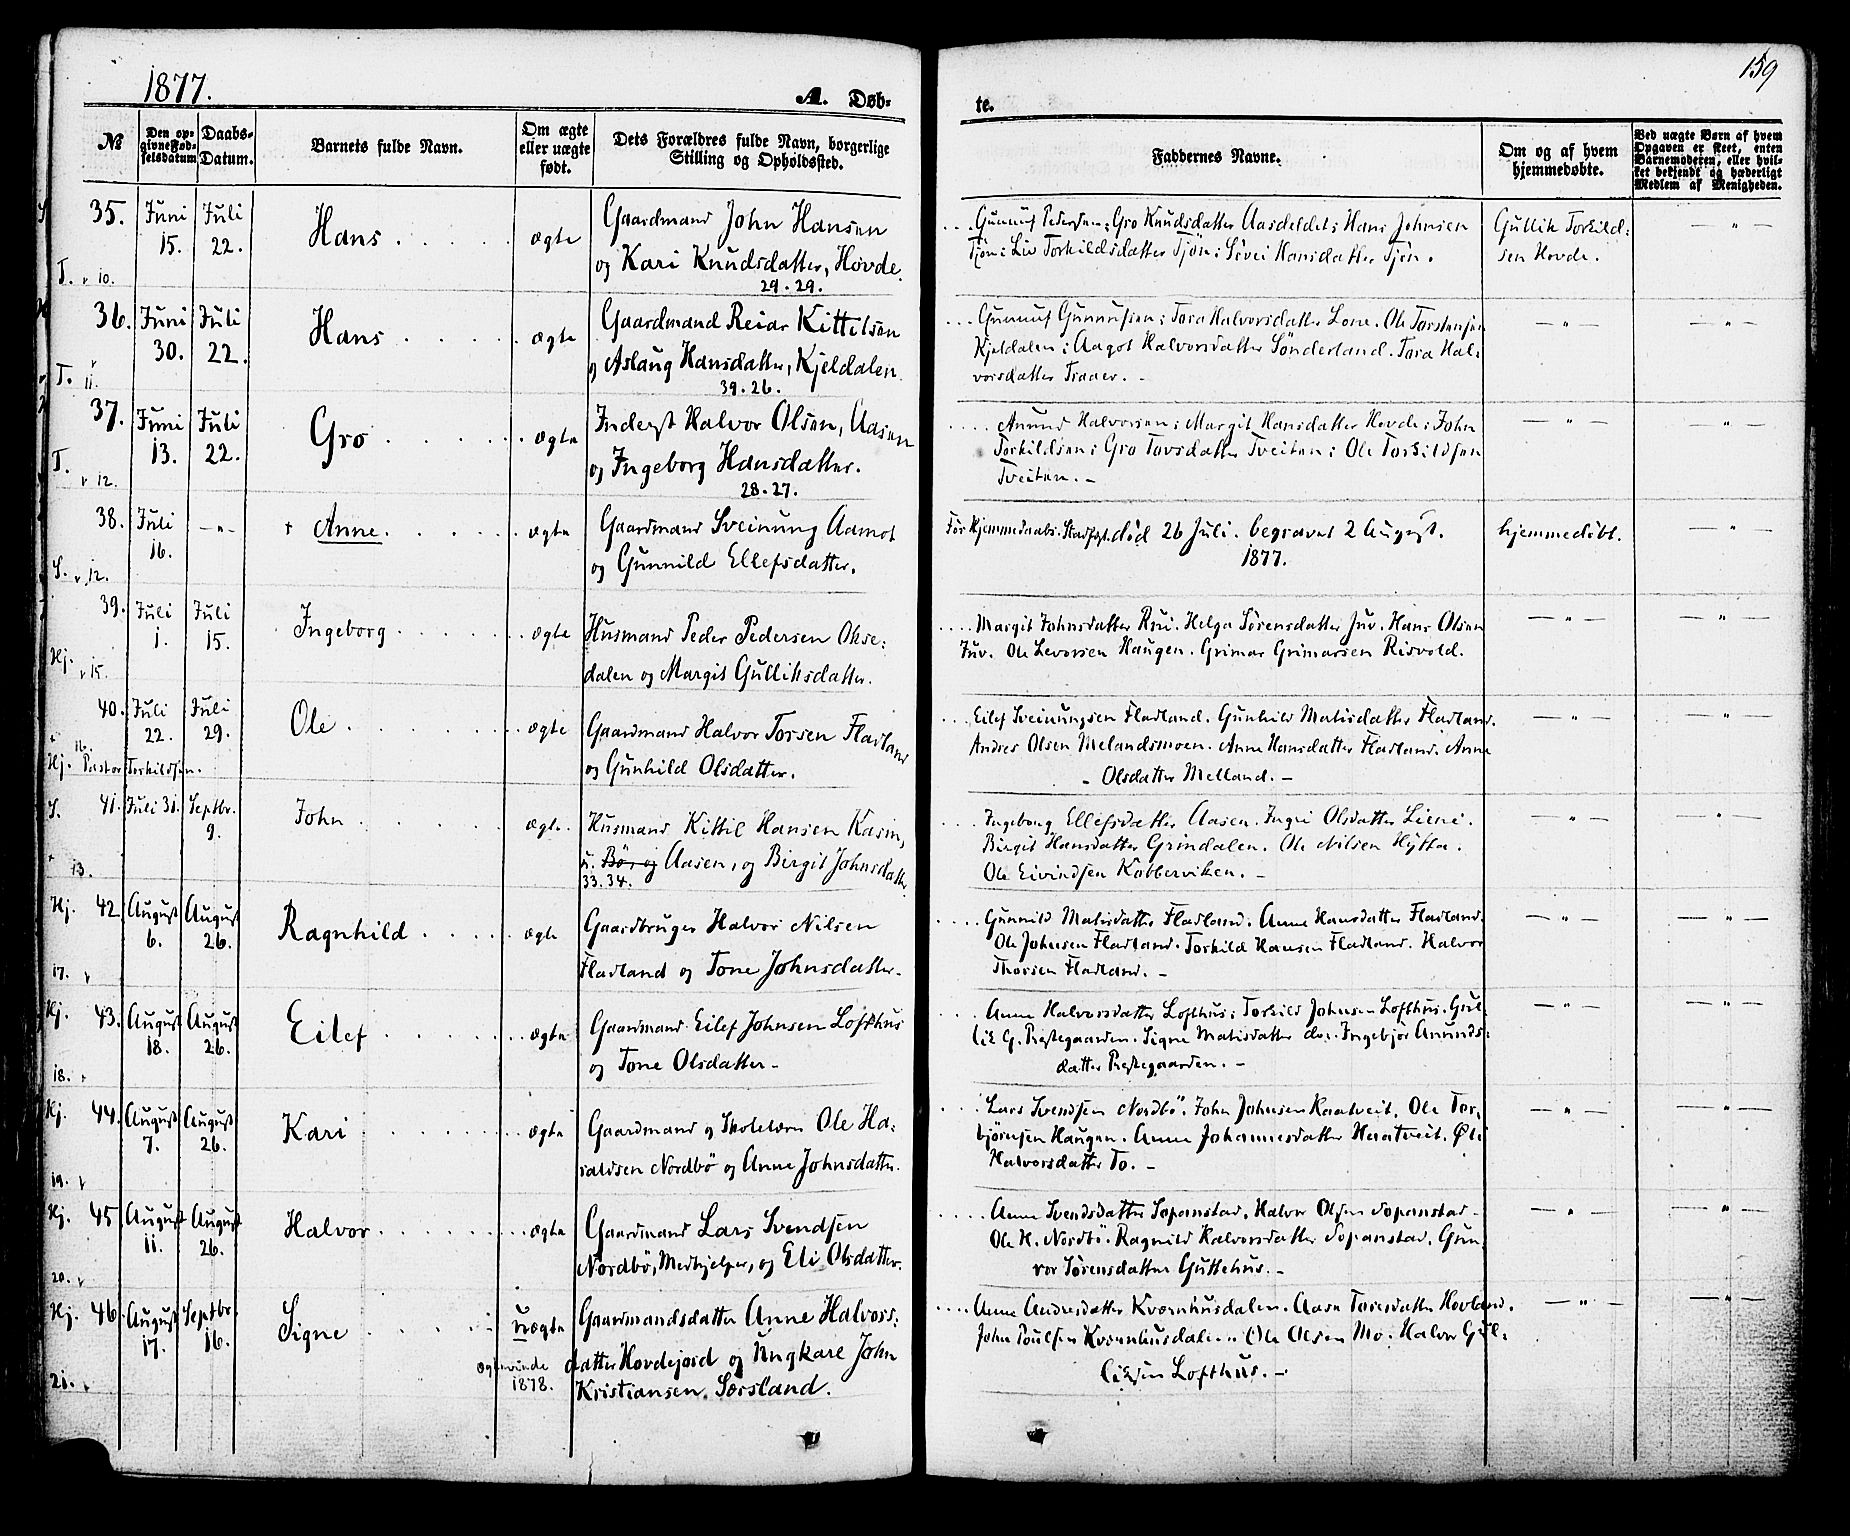 1877.
A. Døb-
te.
159
№
Den op-
givne Fød-
selsdatum
Daabs-
Datum.
Barnets fulde Navn.
Om ægte
eller uægte
født.
Dets Forældres fulde Navn, borgerlige
Stilling og Opholdssted.
Faddernes Navne.
Om og af hvem
hjemmedøbte.
Ved uægte Børn af hvem
Opgaven er skeet, enten
Barnemoderen, eller hvil-
ket bekjendt og hæderligt
Medlem af Menigheden.
35. Juni 15. Juli 22. Hans ægte
Gaardmand John Hansen
og Kari Knudsdatter, Hovde.
29. 29.
Gunnuf Pedersen: Gro Knudsdatter Aasdeldet: Hans Johnsen
Tjøn: Liv Torkildsdatter Tjøn: Søvei Hansdatter Tjøn.
Gullik Torkild-
sen Hovde.
— " —
T. v 10.
36. Juni 30. Juli 22. Hans ægte
Gaardmand Reiar Kittilsen
og Aslaug Hansdatter, Kjeldalen.
39. 26.
Gunnuf Gunnufsen: Tora Halvorsdatter Lone. Ole Torstensen
Kjeldalen: Aagot Halvorsdatter Sønderland. Tora Hal-
vorsdatter Traaer. -
— " — — " —
T. 11.
37. Juni 13. Juli 22. Gro ægte
Inderst Halvor Olsen, Aasen
og Ingeborg Hansdatter.
28. 27.
Anund Halvorsen: Margit Hansdatter Hovde: John
Torkildsen: Gro Tovsdatter Tveiten: Ole Torkildsen
Tveiten. -
— " — — " —
T. v 12.
38. Juli 16. — " — + Anne. ægte
Gaardmand Sveinung Aamot
og Gunnild Ellefsdatter.
Før Hjemmedaabs. Stadfæst. død 26 Juli. begravet 2 August.
1877.
hjemmedøbt.
— " —
S. v 12.
39. Juli 1. Juli 15. Ingeborg ægte
Husmand Peder Pedersen Okse-
dalen og Margit Gulliksdatter.
Margit Johnsdatter Rui. Helga Sørensdatter Juv. Hans Olsen
Juv. Ole Levorsen Haugen. Grimar Grimarsen Risvold.
— " — — " —
Hj. v 15.
40. Juli 22. Juli 29. Ole ægte
Gaardmand Halvor Torsen Fladland
og Gunhild Olsdatter.
Eilef Sveinungsen Fladland. Gunhild Matisdatter Fladland.
Andres Olsen Melandsmoen. Anne Hansdatter Fladland. Anne
- Olsdatter Melland. -
— " — — " —
16.
Hj. Pastor Torkildsen.
S. 41. Juli 31. Septbr. 9. John ægte.
Husmand Kittil Hansen Kasin,
u. Bø, og Aasen, og Birgit Johnsdatter
33. 34.
Ingeborg Ellefsdatter Aasen. Ingri Olsdatter Lieni.
Birgit Hansdatter Grindalen. Ole Nilsen Hytta.
Ole Eivindsen Kobberviken. -
— " — — " —
13.
Hj. 42. August 6. August 26. Ragnhild ægte
Gaardbruger Halvor Nilsen
Fladland og Tone Johnsdatter.
Gunnild Matisdatter Fladland. Anne Hansdatter Fladland.
Ole Johnsen Fladland. Torkild Hansen Fladland. Halvor
Thorsen Fladland. -
— " — — " —
17. v
Hj. 43. August 18. August 26. Eilef ægte
Gaardmand Eilef Johnsen Lofthus
og Tone Olsdatter -
Anne Halvorsdatter Lofthus: Torkild Johnsen Lofthus. Gul-
lik G. Prestegaarden. Signe Matisdatter do. Ingebjør Anunds-
datter Prestegaarden. -
— " — — " —
18. v
Hj. 44. August 7. August 26. Kari ægte
Gaardmand og Skolelærer Ole Ha-
raldsen Nordbø og Anne Johnsdatter.
Lars Svendsen Nordbø. John Johnsen Kaatveit. Ole Tor-
bjørnsen Haugen. Anne Johannesdatter Haatveit.
Halvorsdatter To. -
— " — — " —
19. v
Hj. 45 August 11. August 26. Halvor ægte
Gaardmand Lars Svendsen
Nordbø, Medhjelper, og Eli Olsdatter.
Anne Svendsdatter Sopanstad. Halvor Olsen Sopanstad -
Ole H. Nordbø. Ragnild Halvorsdatter Sopanstad. Gun-
vor Sørensdatter Guttehus. -
— " — — " —
20. v
Hj. 46. August 17. Septbr. 16. Signe uægte
Gaardmandsdatter Anne Halvors-
datter Hovdejord og Ungkarl John
Kristiansen Sørsland.
1878.
Anne Andresdatter Kvernhusdalen. Aase Toresdatter Hovland.
John Poulsen Kvernhusdalen. Ole Olsen Mo. Halvor Gul-
liksen Lofthus. -
— " — — " —
21. v